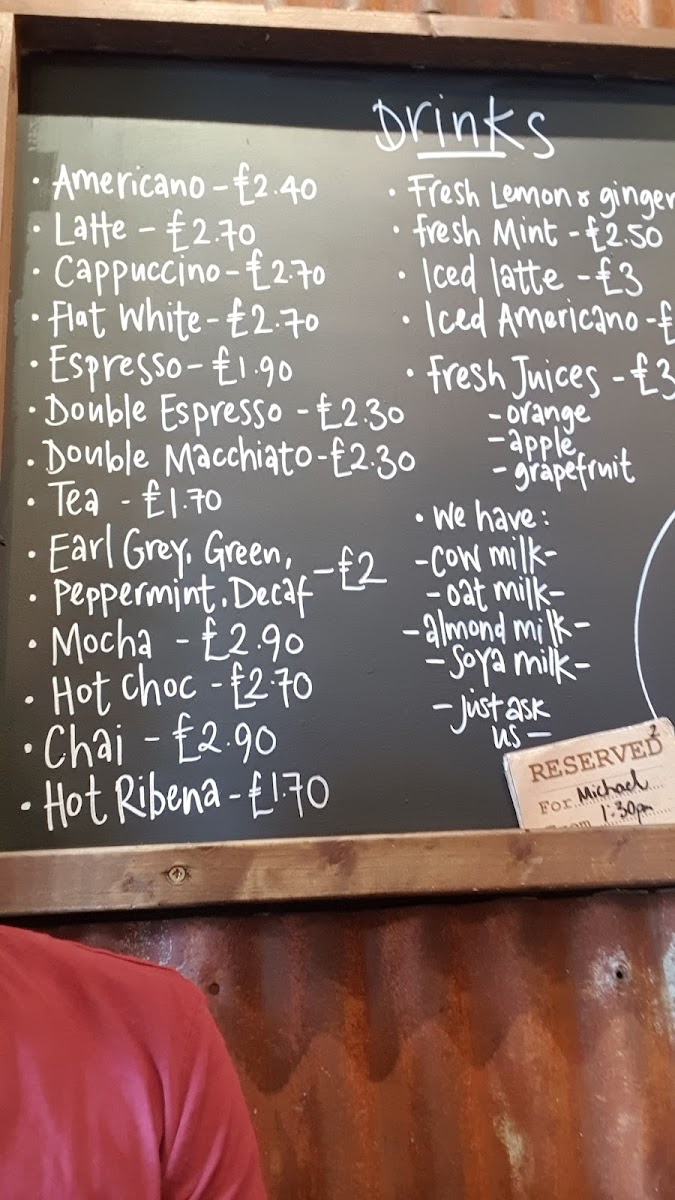 Drinks
• Americano - £2.40
• Latte - £2.70
• Cappuccino - £2.70
• Flat White - £2.70
• Espresso - £1.90
• Double Espresso - £2.30
• Double Macchiato - £2.30
• Tea - £1.70
• Earl Grey, Green,
• Peppermint, Decaf - £2
• Mocha - £2.90
• Hot Choc - £2.70
• Chai - £2.90
• Hot Ribena - £1.70
• Fresh Lemon & ginger
• fresh Mint - £2.50
• Iced latte - £3
• Iced Americano - £
• fresh Juices - £3
- orange
- apple
- grapefruit
• We have:
- cow milk -
- oat milk -
- almond milk -
- soya milk -
- just ask
us -
RESERVED
2
For Michael
1:30pm